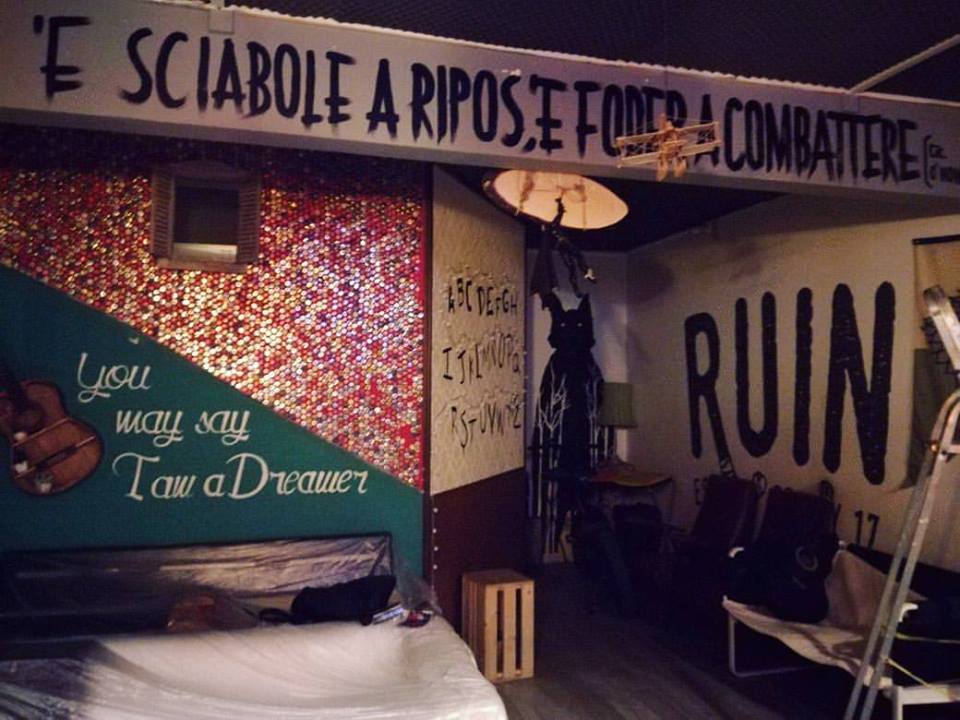 'E SCIABOLE A RIPOS, 'E FODER A COMBATTERE
You
may say
I aw a Dreamer
ABC DEFGH
IJKLMNOPQ
RSTUVWXYZ
RUIN
17